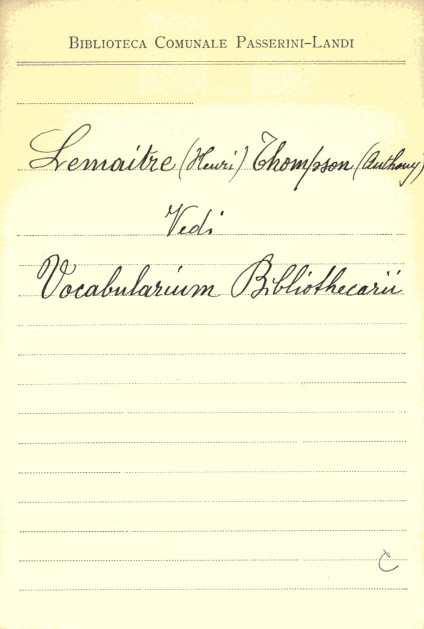 Biblioteca Comunale Passerini-Landi
Lemaitre (Henri) Thompson (Anthony)
Vedi
Vocabularium Bibliothecarii
C